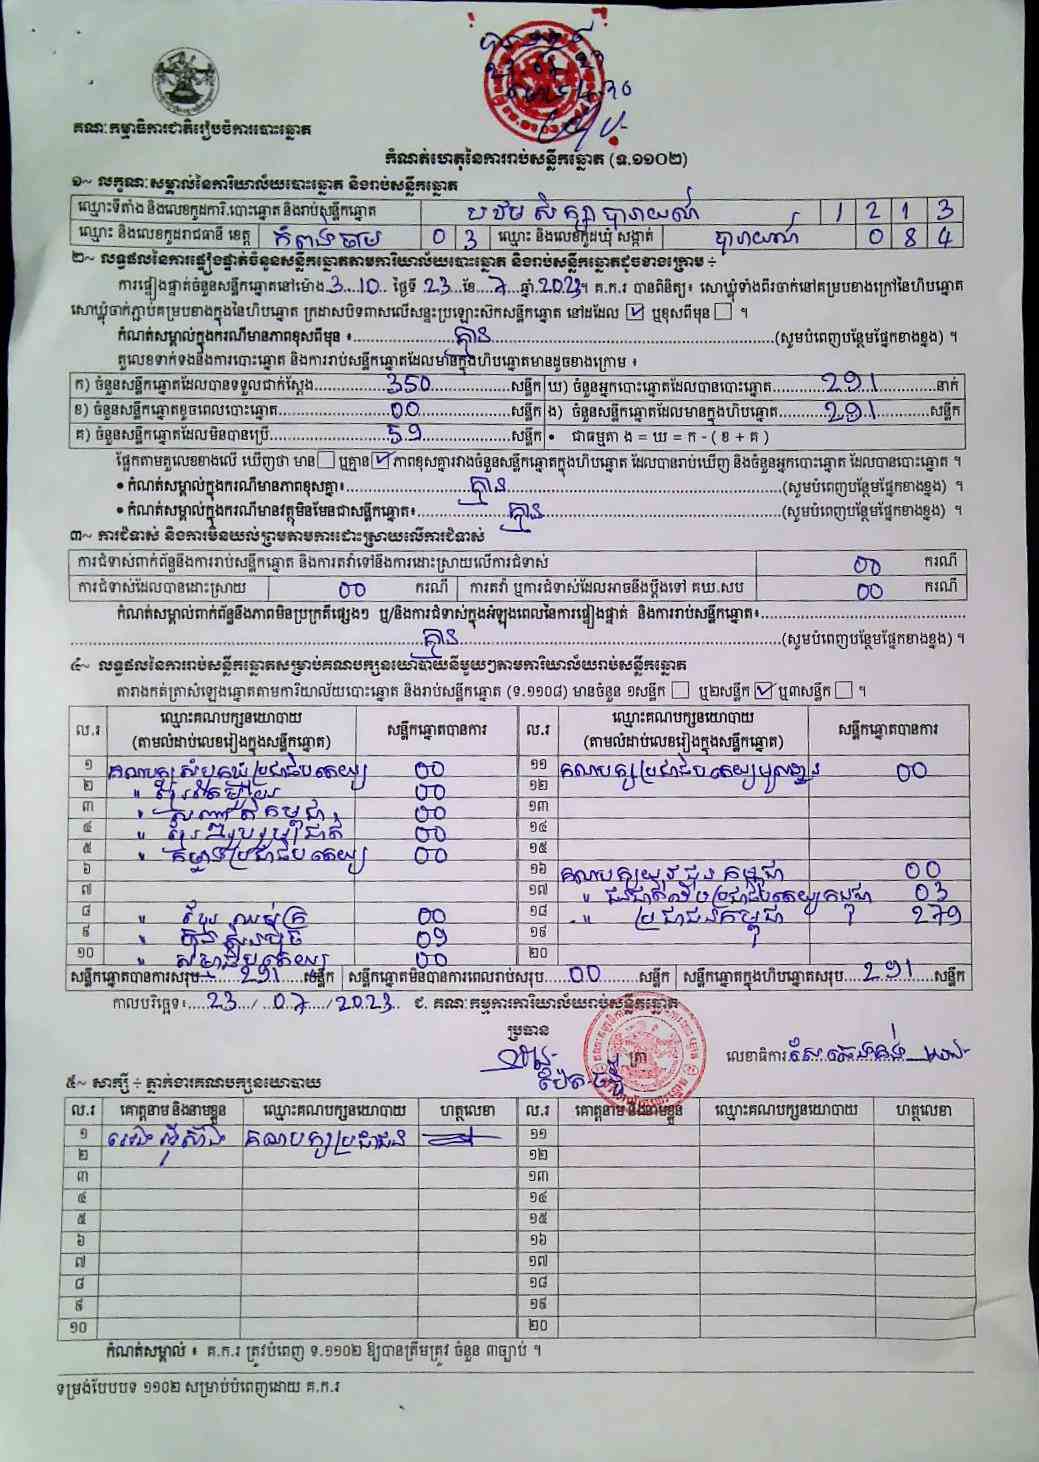 គណៈកម្មាធិការជាតិរៀបចំការបោះឆ្នោត
កំណត់ហេតុនៃការរាប់សន្លឹកឆ្នោត (ទ.១១០២)
១~ លក្ខណៈសម្គាល់នៃការិយាល័យបោះឆ្នោត និងរាប់សន្លឹកឆ្នោត
ឈ្មោះទីតាំង និងលេខកូដការិ.បោះឆ្នោត និងរាប់សន្លឹកឆ្នោត បឋម សិក្សា បារាយណ៍ 1 2 1 3
ឈ្មោះ និងលេខកូដរាជធានី ខេត្ត កំពង់ចាម 0 3 ឈ្មោះ និងលេខកូដឃុំ សង្កាត់ បារាយណ៍ 0 8 4
២~ លទ្ធផលនៃការផ្ទៀងផ្ទាត់ចំនួនសន្លឹកឆ្នោតតាមការិយាល័យបោះឆ្នោត និងរាប់សន្លឹកឆ្នោតដូចខាងក្រោម ÷
ការផ្ទៀងផ្ទាត់ចំនួនសន្លឹកឆ្នោតនៅម៉ោង 3:10 ថ្ងៃទី 23 ខែ 7 ឆ្នាំ 2023។ គ.ក.រ បានពិនិត្យ៖ សោឃ្លុំទាំងពីរចាក់នៅគម្របខាងក្រៅនៃហិបឆ្នោត
សោឃ្លុំចាក់ភ្ជាប់គម្របខាងក្នុងនៃហិបឆ្នោត ក្រដាសបិទពាសលើសន្ទះប្រឡោះស៊កសន្លឹកឆ្នោត នៅដដែល ☑ ឬខុសពីមុន ☐ ។
កំណត់សម្គាល់ក្នុងករណីមានភាពខុសពីមុន ៖ គ្មាន (សូមបំពេញបន្ថែមផ្នែកខាងខ្នង) ។
តួលេខទាក់ទងនឹងការបោះឆ្នោត និងការរាប់សន្លឹកឆ្នោតដែលមានក្នុងហិបឆ្នោតមានដូចខាងក្រោម ៖
ក) ចំនួនសន្លឹកឆ្នោតដែលបានទទួលជាក់ស្តែង 350 សន្លឹក ឃ) ចំនួនអ្នកបោះឆ្នោតដែលបានបោះឆ្នោត 291 នាក់
ខ) ចំនួនសន្លឹកឆ្នោតខូចពេលបោះឆ្នោត 00 សន្លឹក ង) ចំនួនសន្លឹកឆ្នោតដែលមានក្នុងហិបឆ្នោត 291 សន្លឹក
គ) ចំនួនសន្លឹកឆ្នោតដែលមិនបានប្រើ 59 សន្លឹក • ជាធម្មតា ង = ឃ = ក - ( ខ + គ )
ផ្អែកតាមតួលេខខាងលើ ឃើញថា មាន ☐ ឬគ្មាន ☑ ភាពខុសគ្នារវាងចំនួនសន្លឹកឆ្នោតក្នុងហិបឆ្នោត ដែលបានរាប់ឃើញ និងចំនួនអ្នកបោះឆ្នោត ដែលបានបោះឆ្នោត ។
• កំណត់សម្គាល់ក្នុងករណីមានភាពខុសគ្នា៖ គ្មាន (សូមបំពេញបន្ថែមផ្នែកខាងខ្នង) ។
• កំណត់សម្គាល់ក្នុងករណីមានវត្ថុមិនមែនជាសន្លឹកឆ្នោត៖ គ្មាន (សូមបំពេញបន្ថែមផ្នែកខាងខ្នង) ។
៣~ ការជំទាស់ និងការមិនយល់ព្រមតាមការដោះស្រាយលើការជំទាស់
ការជំទាស់ពាក់ព័ន្ធនឹងការរាប់សន្លឹកឆ្នោត និងការតវ៉ាទៅនឹងការដោះស្រាយលើការជំទាស់ 00 ករណី
ការជំទាស់ដែលបានដោះស្រាយ 00 ករណី ការតវ៉ា ឬការជំទាស់ដែលអាចនឹងប្តឹងទៅ គឃ.សប 00 ករណី
កំណត់សម្គាល់ពាក់ព័ន្ធនឹងភាពមិនប្រក្រតីផ្សេងៗ ឬ/និងការជំទាស់ក្នុងអំឡុងពេលនៃការផ្ទៀងផ្ទាត់ និងការរាប់សន្លឹកឆ្នោត៖
គ្មាន (សូមបំពេញបន្ថែមផ្នែកខាងខ្នង) ។
៤~ លទ្ធផលនៃការរាប់សន្លឹកឆ្នោតសម្រាប់គណបក្សនយោបាយនីមួយៗតាមការិយាល័យរាប់សន្លឹកឆ្នោត
តារាងកត់ត្រាសំឡេងឆ្នោតតាមការិយាល័យបោះឆ្នោត និងរាប់សន្លឹកឆ្នោត (ទ.១១០៨) មានចំនួន ១សន្លឹក ☐ ឬ២សន្លឹក ☑ ឬ៣សន្លឹក ☐ ។
ល.រ ឈ្មោះគណបក្សនយោបាយ (តាមលំដាប់លេខរៀងក្នុងសន្លឹកឆ្នោត) សន្លឹកឆ្នោតបានការ ល.រ ឈ្មោះគណបក្សនយោបាយ (តាមលំដាប់លេខរៀងក្នុងសន្លឹកឆ្នោត) សន្លឹកឆ្នោតបានការ
១ គណបក្សសំបុកឃ្មុំប្រជាធិបតេយ្យ 00 ១១ គណបក្សប្រជាធិបតេយ្យមូលដ្ឋាន 00
២ " 00 ១២
៣ " កម្ពុជា 00 ១៣
៤ " ខ្មែររួបរួមជាតិ 00 ១៤
៥ " កម្ពុជាប្រជាធិបតេយ្យ 00 ១៥
៦ ១៦ គណបក្សយុវជនកម្ពុជា 00
៧ ១៧ " ជនជាតិដើមប្រជាធិបតេយ្យកម្ពុជា 03
៨ " ខ្មែរឈប់ក្រ 00 ១៨ " ប្រជាជនកម្ពុជា 279
៩ " ហ្វ៊ុនស៊ិនប៉ិច 09 ១៩
១០ " ធម្មាធិបតេយ្យ 00 ២០
សន្លឹកឆ្នោតបានការសរុប 291 សន្លឹក សន្លឹកឆ្នោតមិនបានការពេលរាប់សរុប 00 សន្លឹក សន្លឹកឆ្នោតក្នុងហិបឆ្នោតសរុប 291 សន្លឹក
កាលបរិច្ឆេទ៖ 23 / 07 / 2023 ជ. គណៈកម្មការការិយាល័យរាប់សន្លឹកឆ្នោត
ប្រធាន
ត្រា
លេខាធិការ
៥~ សាក្សី ÷ ភ្នាក់ងារគណបក្សនយោបាយ
ល.រ គោត្តនាម និងនាមខ្លួន ឈ្មោះគណបក្សនយោបាយ ហត្ថលេខា ល.រ គោត្តនាម និងនាមខ្លួន ឈ្មោះគណបក្សនយោបាយ ហត្ថលេខា
១ គណបក្សប្រជាជន ១១
២ ១២
៣ ១៣
៤ ១៤
៥ ១៥
៦ ១៦
៧ ១៧
៨ ១៨
៩ ១៩
១០ ២០
កំណត់សម្គាល់ ៖ គ.ក.រ ត្រូវបំពេញ ទ.១១០២ ឱ្យបានត្រឹមត្រូវ ចំនួន ៣ច្បាប់ ។
ទម្រង់បែបបទ ១១០២ សម្រាប់បំពេញដោយ គ.ក.រ